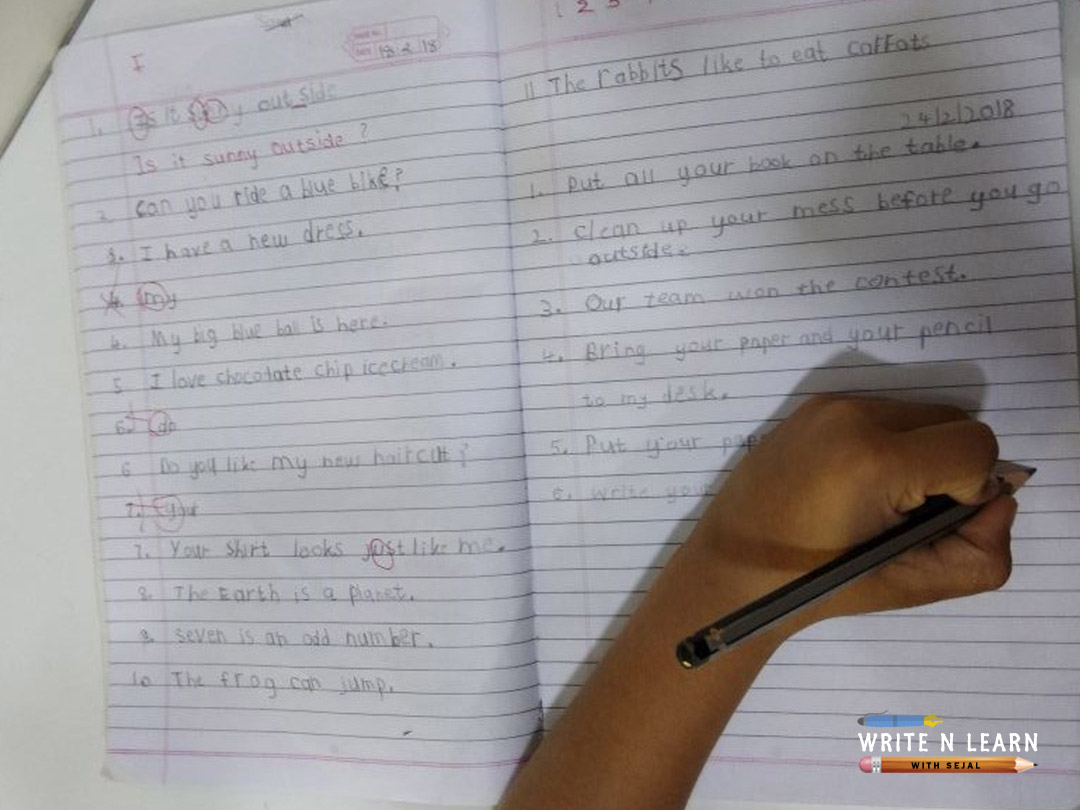 18 2 18
I
1. Is it sunny outside
Is it sunny outside ?
2 can you ride a blue bike?
3. I have a new dress.
my
4. My big blue ball is here.
5 I love chocolate chip icecream.
6. do
6 Do you like my new haircut?
7. your
7. Your shirt looks just like me.
8. The Earth is a planet.
9. seven is an odd number.
10 The frog can jump.
1 2 3
11 The rabbits like to eat carrots
24/2/2018
1. Put all your book on the table.
2. clean up your mess before you go
outside.
3. Our team won the contest.
4. Bring your paper and your pencil
to my desk.
5. Put your
6. write your
WRITE N LEARN
WITH SEJAL